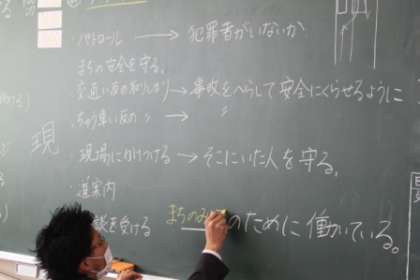 ・パトロール → 犯罪者がいないか
まちの安全を守る。
交通い反の取りしまり → 事故をへらして安全にくらせるように
・ちゅう車い反の 〃 → 〃
現
・現場にかけつける → そこにいた人を守る。
・道案内
談を受ける
まちのみ のために働いている。